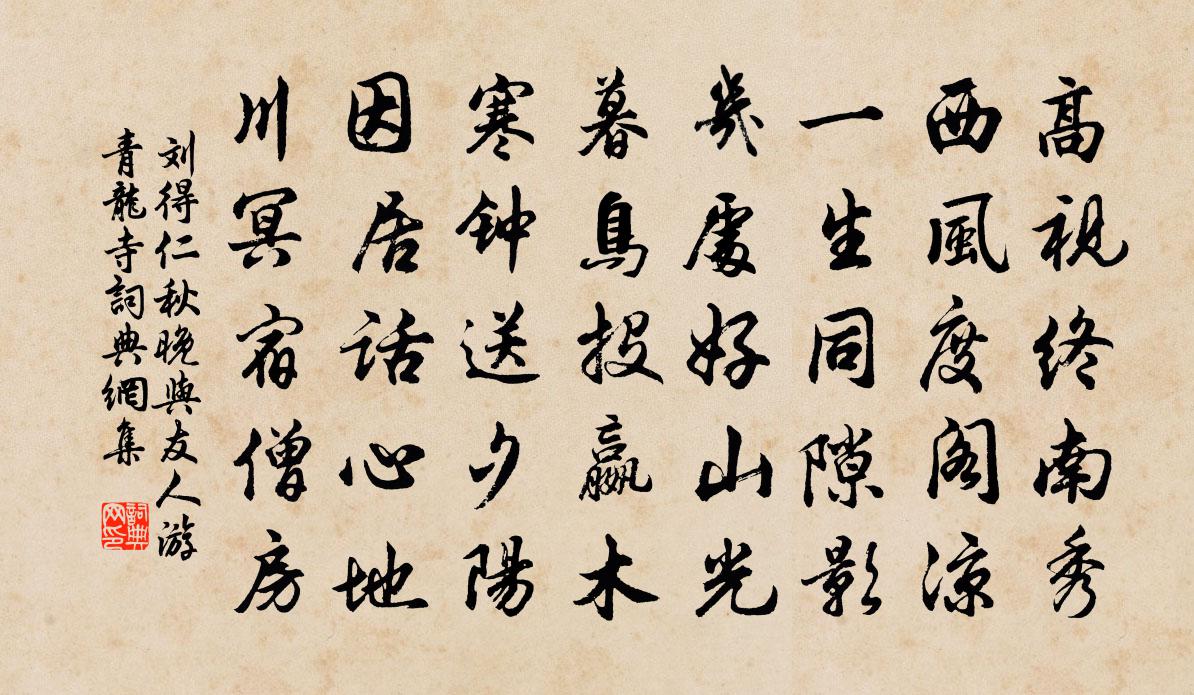 高視終南秀
西風度阁涼
一生同隙影
幾處好山光
暮鳥投贏木
寒钟送夕陽
因居話心地
川冥宿僧房
刘得仁秋晚與友人游
青龍寺詞典網集
詞典
网印